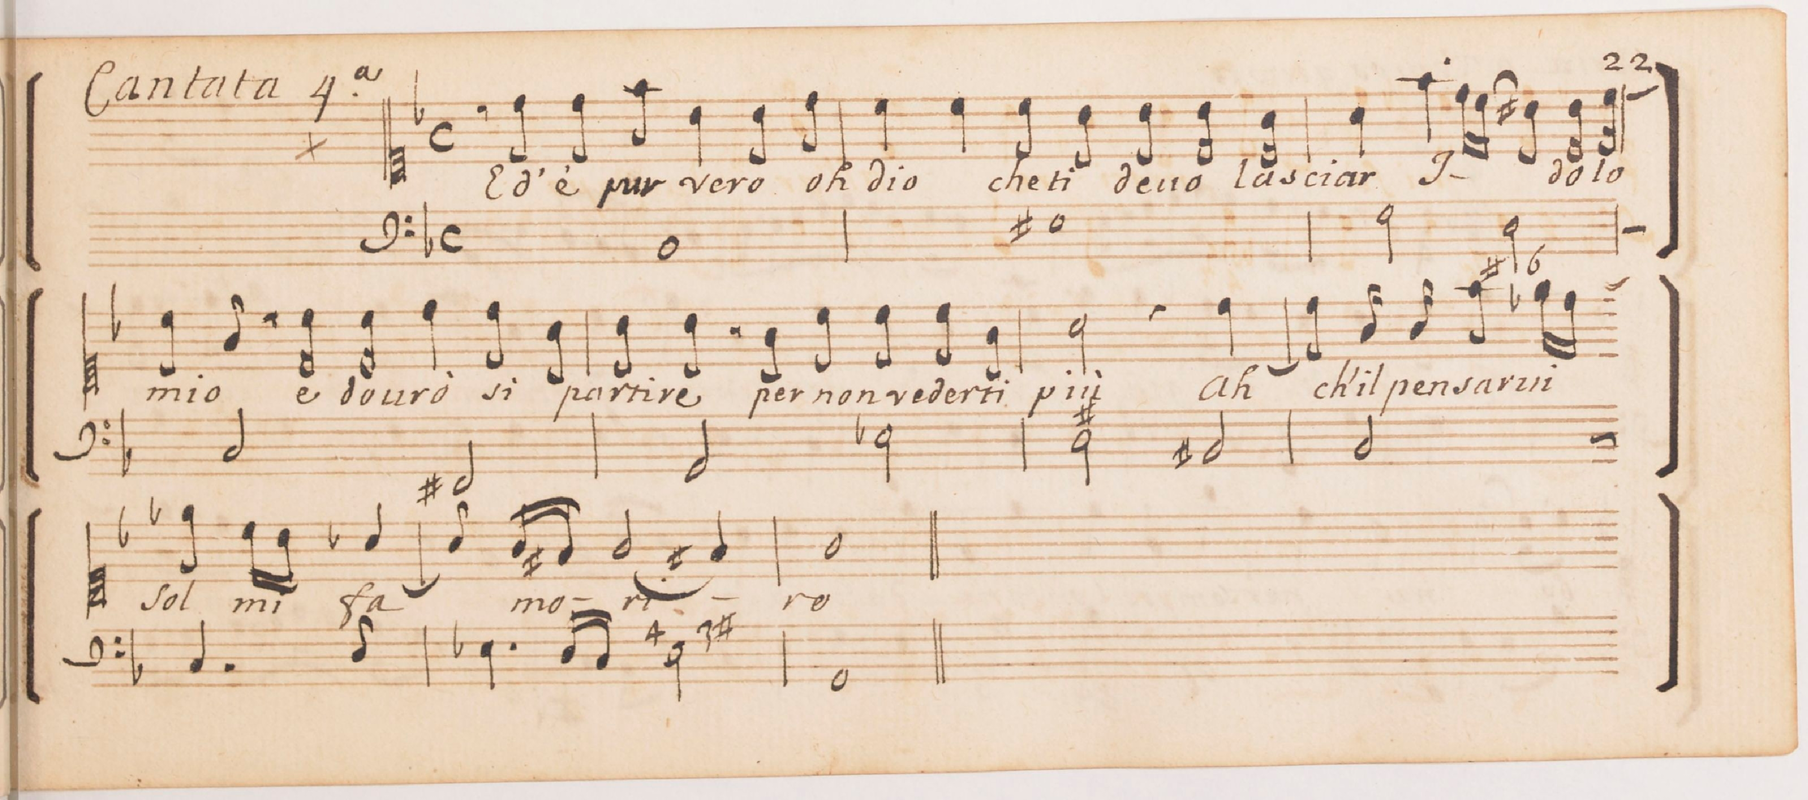 Cantata 4.ª 22
Ed' è pur vero oh dio che ti deuo lasciar I- dolo
# 6
mio e dourò si partire per non vederti più Ah ch'il pensarui
sol mi fa mo- ri - ro
4 3#